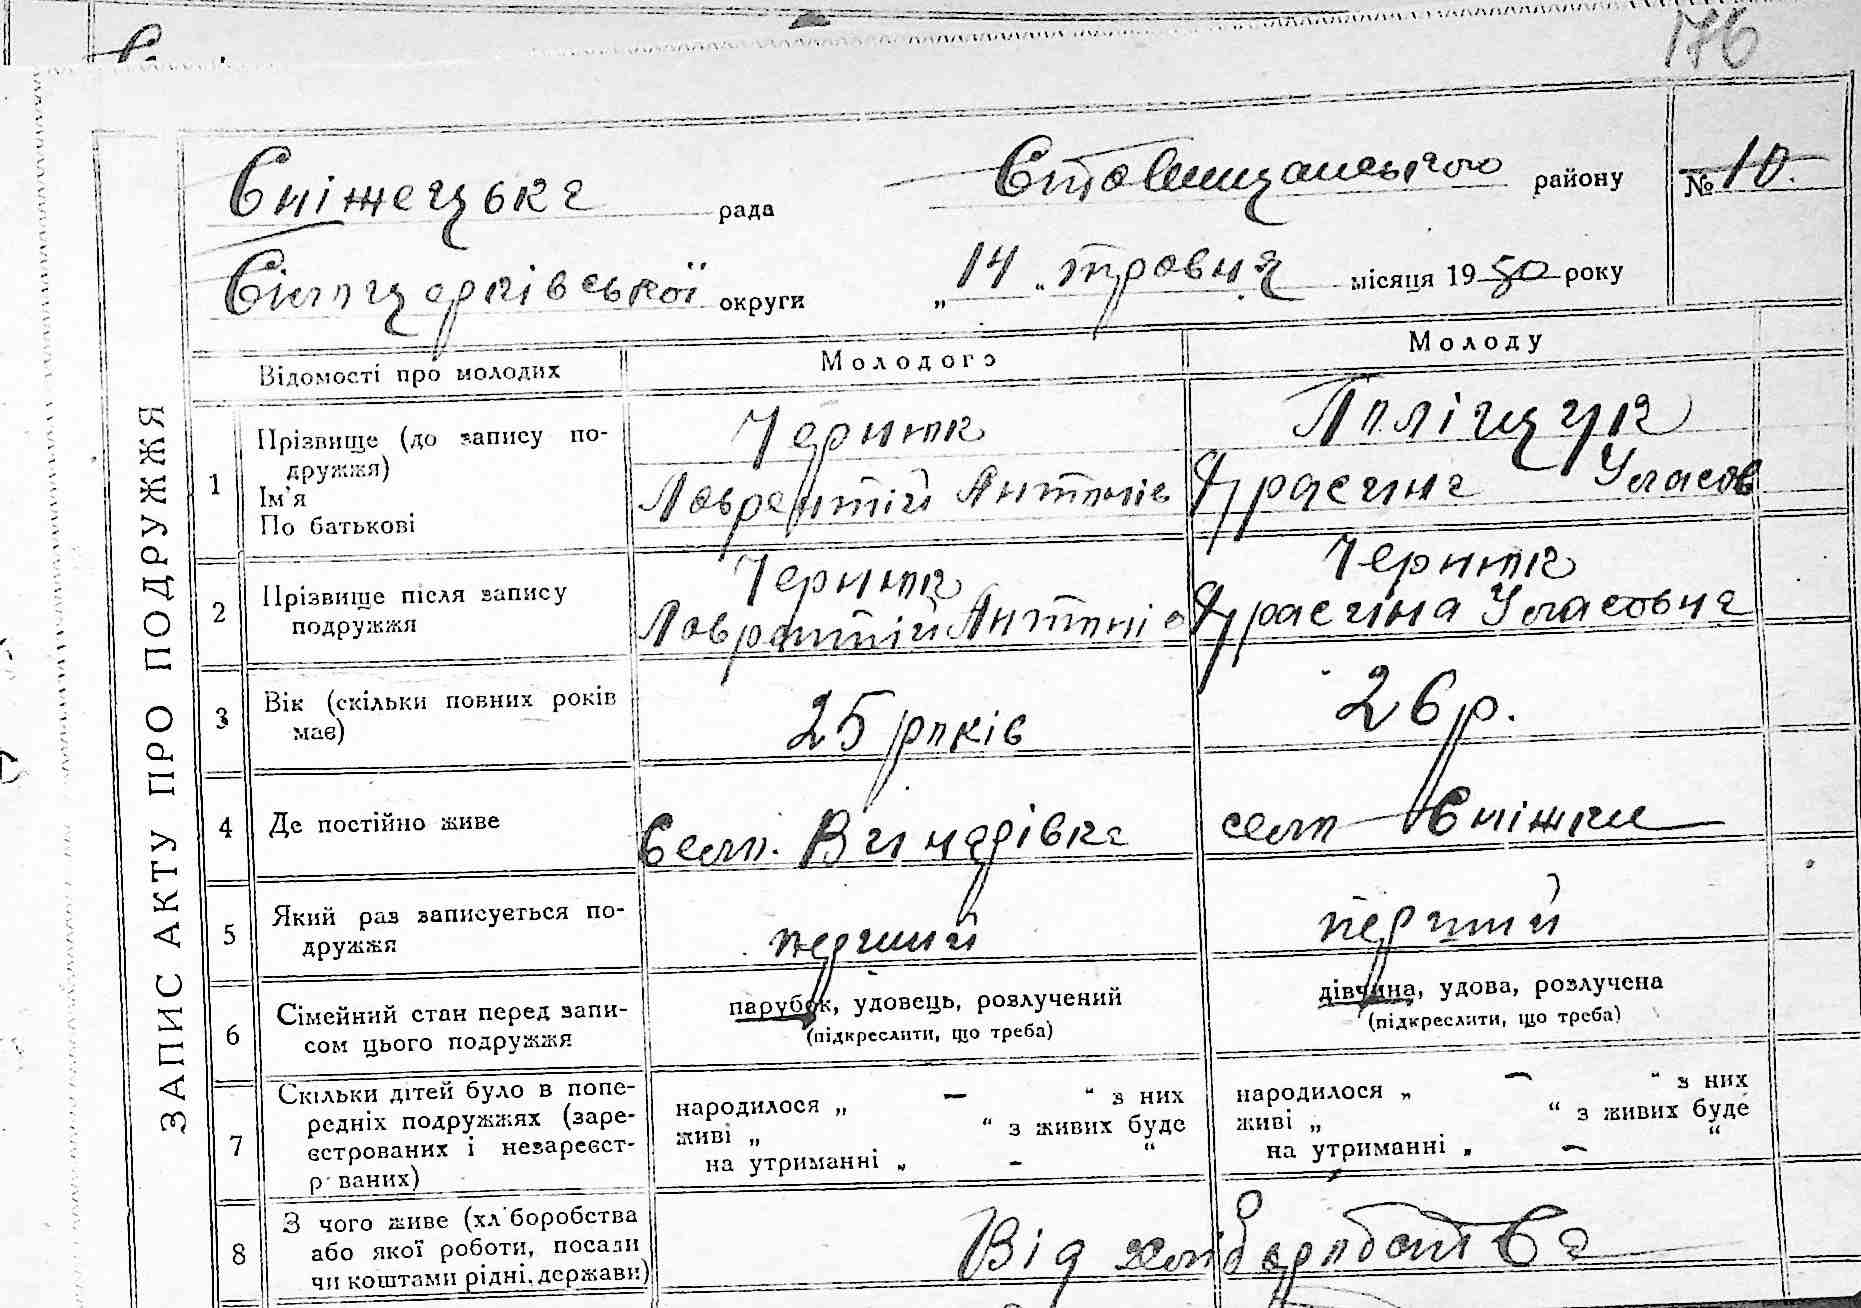 176
Сніжецька рада Ставищанського району № 10.
Білоцерківської округи „ 14 „ травня місяця 1930 року
ЗАПИС АКТУ ПРО ПОДРУЖЖЯ
Відомості про молодих Молодого Молоду
1 Прізвище (до запису по-
дружжя)
Ім'я
По батькові
Чернюк
Лаврентій Антонів
Поліщук
Фрасина Уласов
2 Прізвище після запису
подружжя
Чернюк
Лаврентій Антоніо
Чернюк
Фрасина Уласовна
3 Вік (скільки повних років
має)
25 років
26 р.
4 Де постійно живе
село. Винадівка
село Сніжки
5 Який раз записується по-
дружжя
перший
перший
6 Сімейний стан перед запи-
сом цього подружжя
парубок, удовець, розлучений
(підкреслити, що треба)
дівчина, удова, розлучена
(підкреслити, що треба)
7 Скільки дітей було в попе-
редніх подружжях (заре-
єстрованих і незареєст-
р ваних)
народилося „ — “ з них
живі „ “ з живих буде
на утриманні „ - “
народилося „ — “ з них
живі „ “ з живих буде
на утриманні „ — “
8 З чого живе (хл боробства
або якої роботи, посади
чи коштами рідні, держави)
Від хліборобства